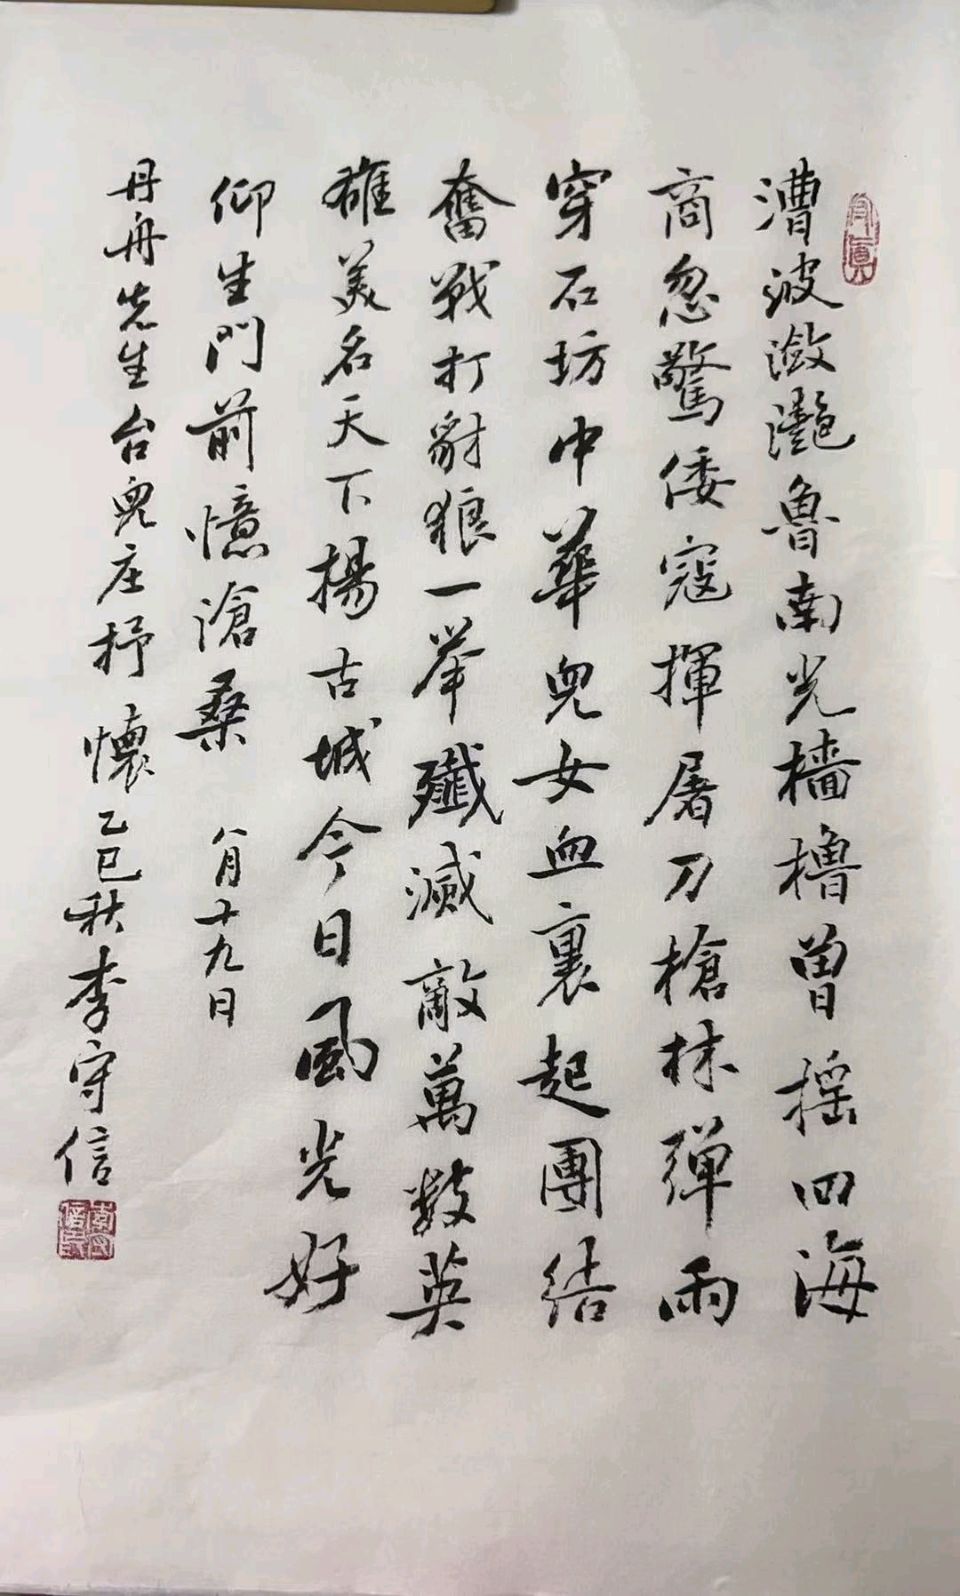 漕波潋灩魯南光檣櫓曽摇四海
商忽驚倭寇揮屠刀槍林弹雨
穿石坊中華兒女血裏起團结
奮戰打豺狼一举殲滅敵萬数英
雄美名天下揚古城今日風光好
仰生門前憶滄桑 八月十九日
丹舟先生台兒庄抒懷乙巳秋李守信